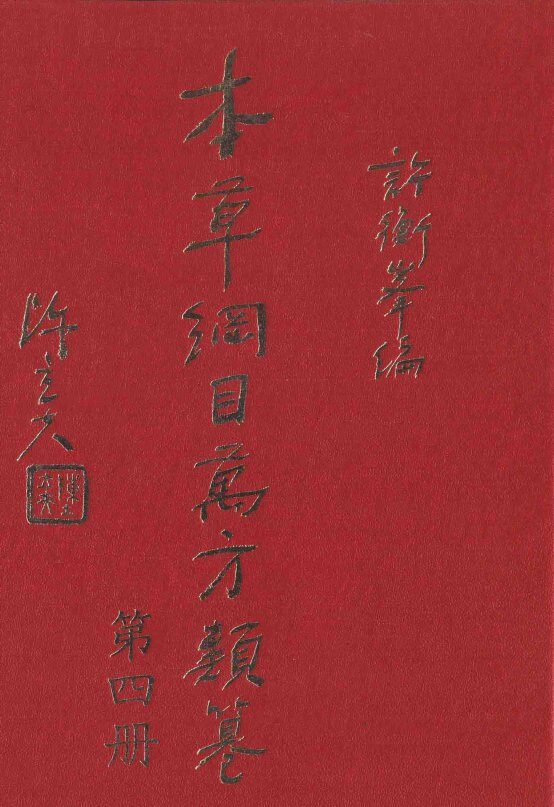 許衡峯編
本草綱目萬方類纂
第四册
陳立夫